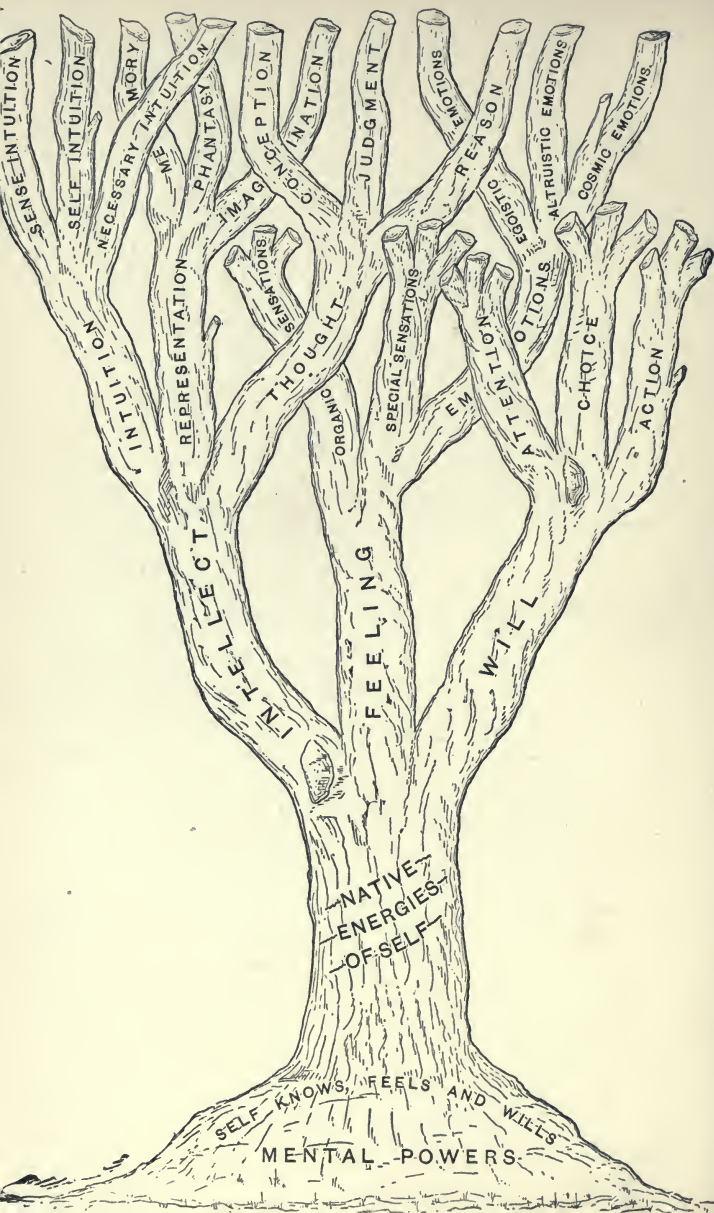 SENSE INTUITION
SELF INTUITION
NECESSARY INTUITION
MEMORY
PHANTASY
IMAGINATION
CONCEPTION
JUDGMENT
REASON
EGOISTIC EMOTIONS
ALTRUISTIC EMOTIONS
COSMIC EMOTIONS
INTUITION
REPRESENTATION
THOUGHT
ORGANIC SENSATIONS
SPECIAL SENSATIONS
EMOTIONS
ATTENTION
CHOICE
ACTION
INTELLECT
FEELING
WILL
NATIVE
ENERGIES
OF SELF
SELF KNOWS, FEELS AND WILLS
MENTAL POWERS